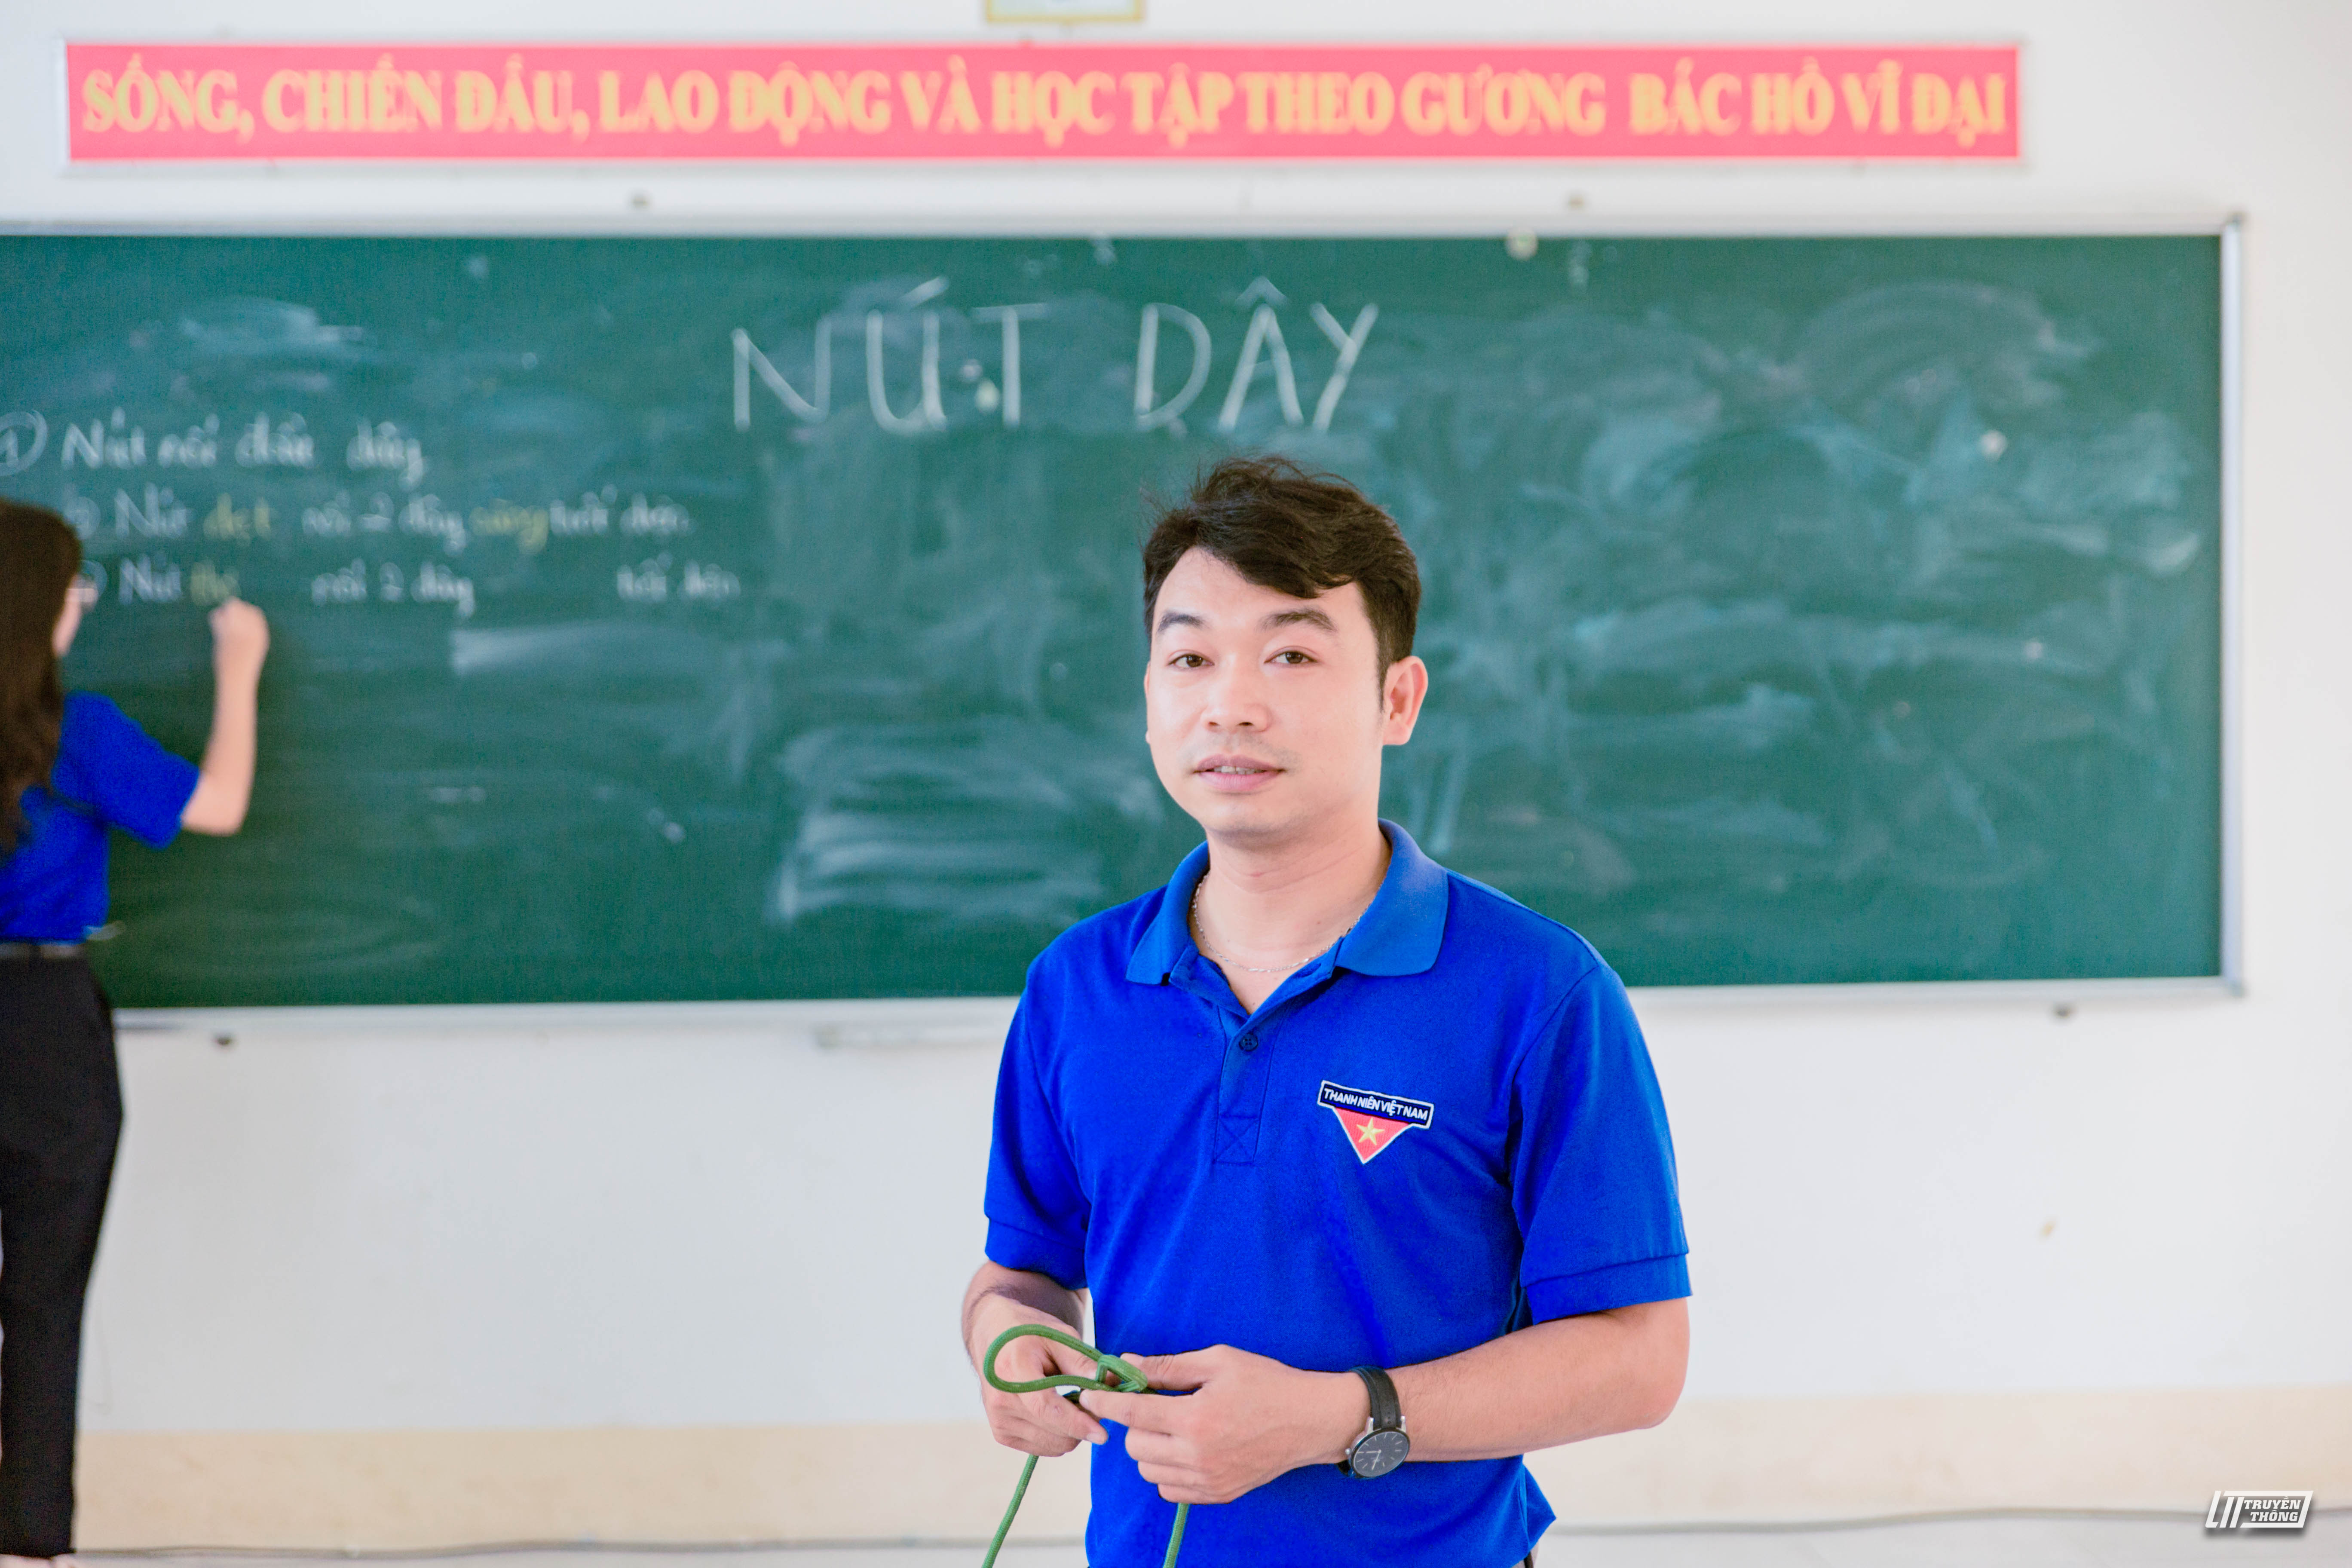 SỐNG, CHIẾN ĐẤU, LAO ĐỘNG VÀ HỌC TẬP THEO GƯƠNG BÁC HỒ VĨ ĐẠI
NÚT DÂY
① Nút nối đầu dây
Nút dẹt nối 2 dây cùng tiết diện
Nút thợ nối 2 dây tiết diện
THANH NIÊN VIỆT NAM
TRUYỀN
THÔNG